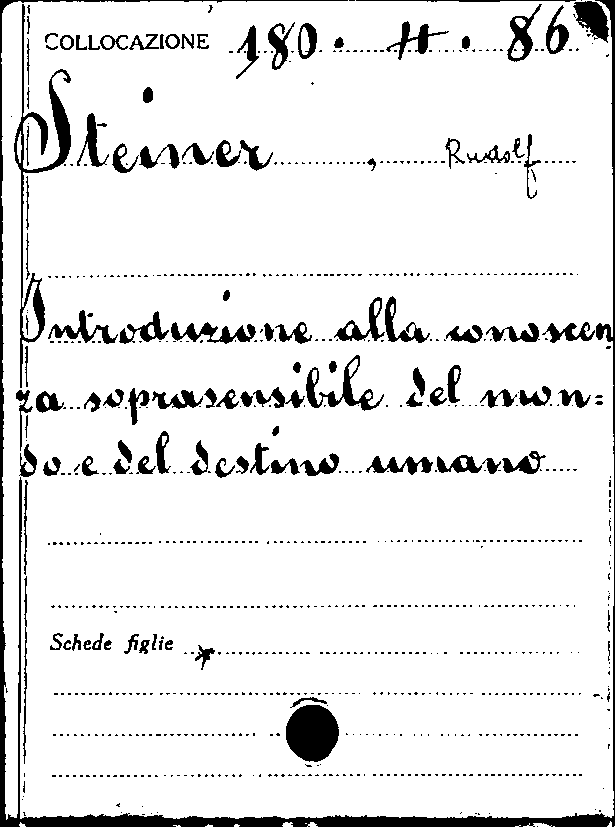 COLLOCAZIONE 180. H. 86
Steiner, Rudolf
Introduzione alla conoscen
za soprasensibile del mon=
do e del destino umano
Schede figlie